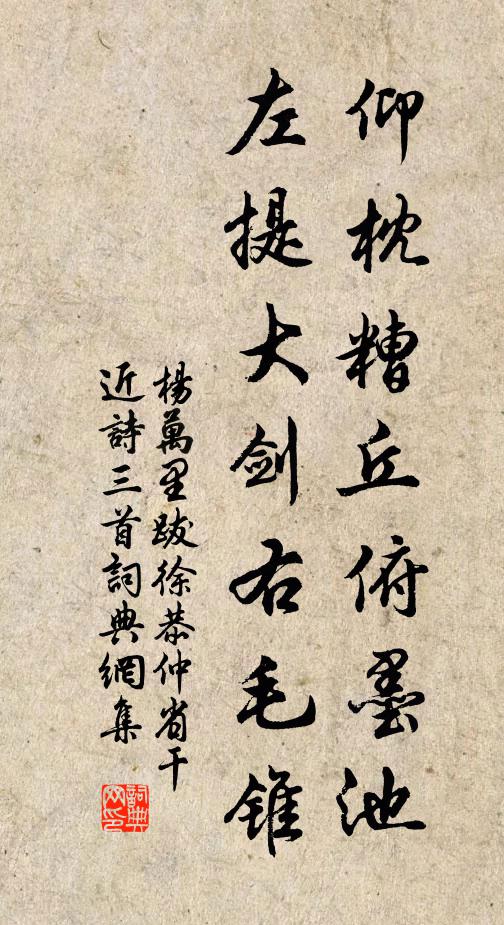 仰枕糟丘俯墨池
左提大剑右毛錐
楊萬里跋徐恭仲省干
近詩三首詞典網集
詞典
网印